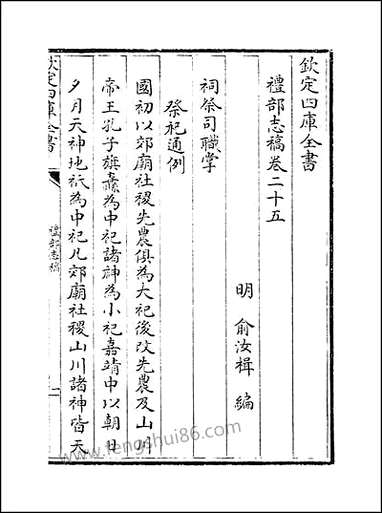 欽定四庫全書
禮部志稿卷二十五
明 俞汝楫 編
祠祭司職掌
祭祀通例
國初以郊廟社稷先農俱為大祀後改先農及山川
帝王孔子旗纛為中祀諸神為小祀嘉靖中以朝日
夕月天神地祇為中祀凡郊廟社稷山川諸神皆天
欽定四庫全書
禮部志稿
一
www.fengshui86.com